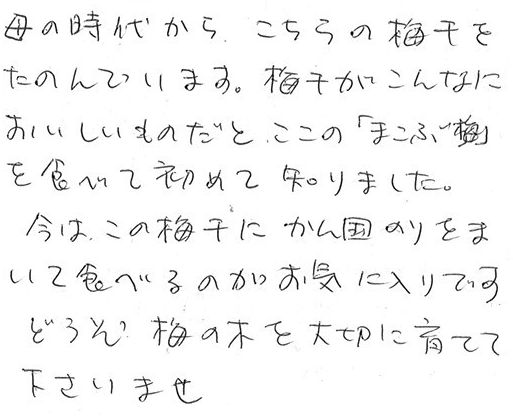 母の時代から、こちらの梅干を
たのんでいます。梅干がこんなに
おいしいものだと、ここの「まこふ゛梅」
を食べて初めて知りました。
今は、この梅干にかん国のりをま
いて食べるのがお気に入りです
どうぞ梅の木を大切に育てて
下さいませ